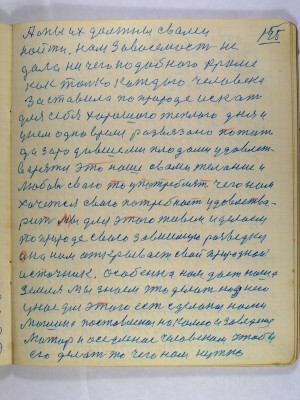 155
А мы их должны своими
найти, нам Зависемость не
дала ни чего подобного кроме
как только каждого человека
Заставила по природе искат
для себя хорошего теплого дня и
одно время развязано
да зародившеми плодами удовлет-
это наше свами желание и
Любов свого то употреблят чего нам
хочется свого потребност удовлетва-
рит мы для этого живем и делаем
по природе своего зависимую разведку
она нам открывает свой природной
источник. Особенна нам дает наша
Земля мы знаем это делат на нею
у нас для этого ест сделаны нами
Машына поставлена на колеса и заведеная
Матор и население человеком чтобы
его делат то чего нам нужно